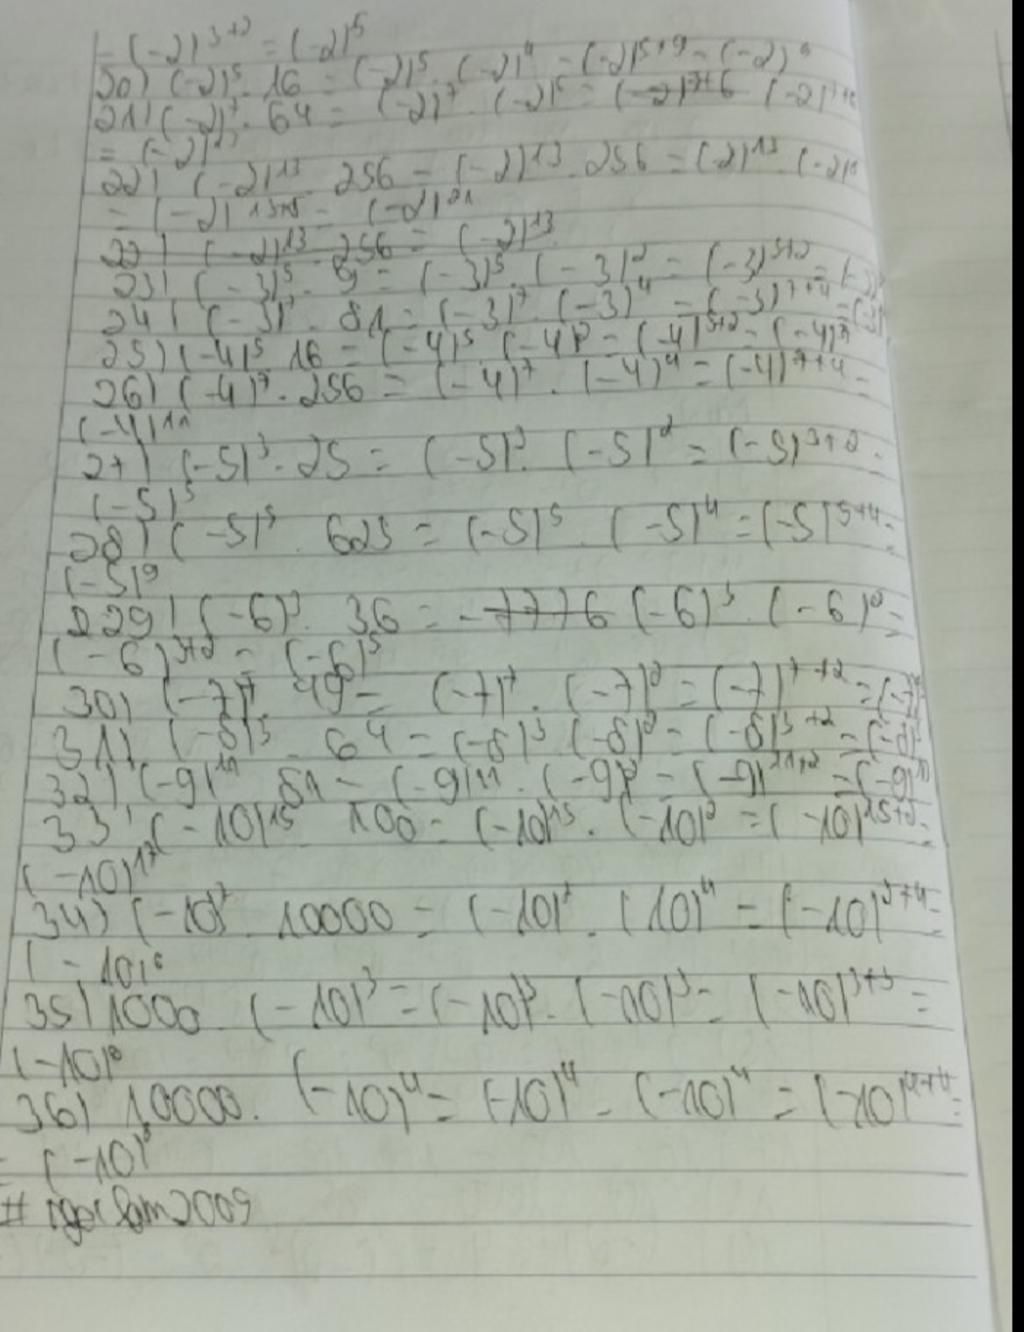 = (-2)³⁺² = (-2)⁵
20) (-2)⁵ · 16 = (-2)⁵ · (-2)⁴ = (-2)⁵⁺⁴ = (-2)⁹
21) (-2)⁷ · 64 = (-2)⁷ · (-2)⁶ = (-2)⁷⁺⁶ (-2)⁷⁺⁶
= (-2)¹³
22) (-2)¹³ · 256 = (-2)¹³ · 256 = (-2)¹³ · (-2)⁸
= (-2)¹³⁺⁸ = (-2)²¹
22) (-2)¹³ 256 = (-2)¹³
23) (-3)⁵ · 9 = (-3)⁵ · (-3)² = (-3)⁵⁺² = (-3)⁷
24) (-3)⁷ · 81 = (-3)⁷ · (-3)⁴ = (-3)⁷⁺⁴ = (-3)
25) (-4)⁵ 16 = (-4)⁵ · (-4)² = (-4)⁵⁺² = (-4)⁷
26) (-4)⁷ · 256 = (-4)⁷ · (-4)⁴ = (-4)⁷⁺⁴ =
(-4)¹¹
27) (-5)³ · 25 = (-5)³ · (-5)² = (-5)³⁺² =
(-5)⁵
28) (-5)⁵ · 625 = (-5)⁵ · (-5)⁴ = (-5)⁵⁺⁴ =
(-5)⁹
229) (-6)³ · 36 = -7776 (-6)³ · (-6)² =
(-6)³⁺² = (-6)⁵
30) (-7)⁷ · 49 = (-7)⁷ · (-7)² = (-7)⁷⁺² = (-7)⁹
31) (-8)³ · 64 = (-8)³ (-8)² = (-8)³⁺² = (-8)⁵
32) (-9)¹¹ 81 = (-9)¹¹ · (-9)² = (-9)¹¹⁺² = (-9)¹³
33) (-10)¹⁵ 100 = (-10)¹⁵ · (-10)² = (-10)¹⁵⁺² =
(-10)¹⁷
34) (-10)² · 10000 = (-10)² · (10)⁴ = (-10)²⁺⁴ =
(-10)⁶
35) 1000 · (-10)³ = (-10)³ · (-10)³ = (-10)³⁺³ =
(-10)⁶
36) 10000 · (-10)⁴ = (-10)⁴ · (-10)⁴ = (-10)⁴⁺⁴ =
= (-10)⁸
#